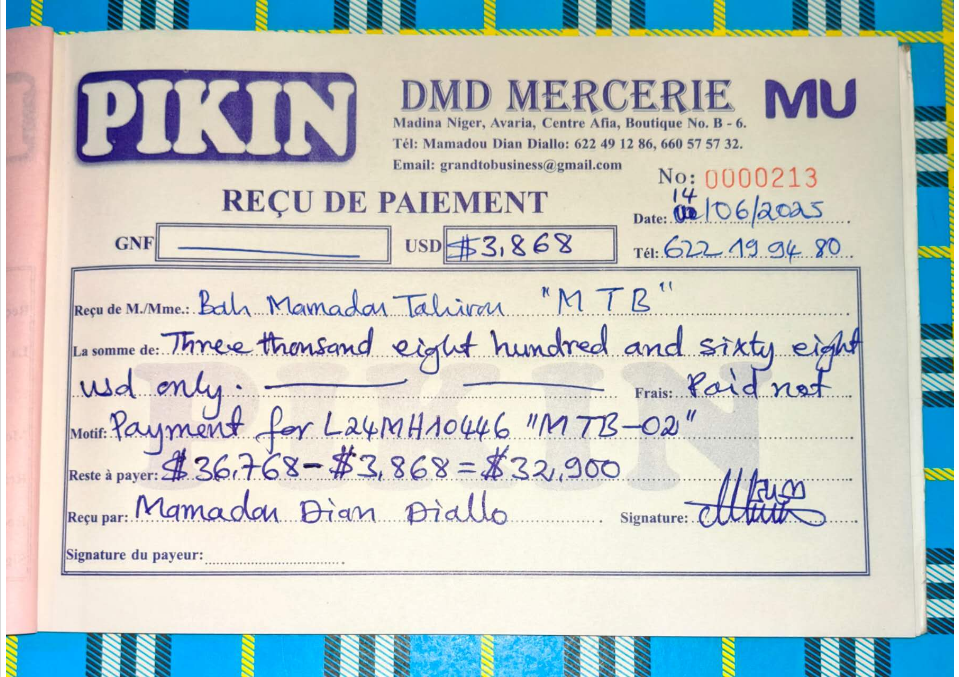 PIKIN
DMD MERCERIE MU
Madina Niger, Avaria, Centre Afia, Boutique No. B - 6.
Tél: Mamadou Dian Diallo: 622 49 12 86, 660 57 57 32.
Email: grandtobusiness@gmail.com
No: 0000213
REÇU DE PAIEMENT
14
Date: /06/2025
GNF USD $3,868
Tél: 622 19 94 80
Reçu de M./Mme.: Bah Mamadou Tahirou "MTB"
La somme de: Three thousand eight hundred and sixty eight
usd only. Frais: Paid not
Motif: Payment for L24MH10446 "MTB-02"
Reste à payer: $36,768 - $3,868 = $32,900
Reçu par: Mamadou Dian Diallo Signature:
Signature du payeur:
PIKIN